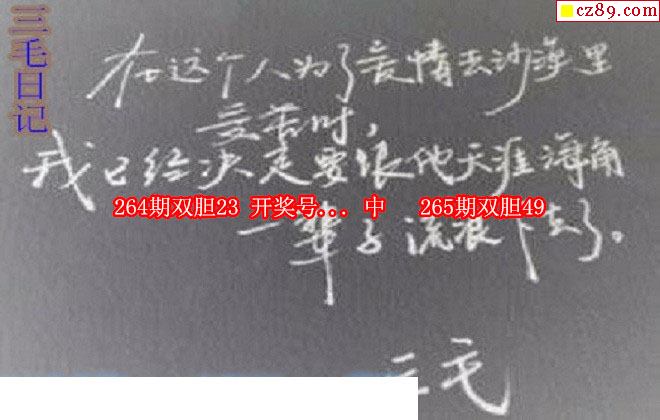 cz89.com
三毛日记
在这个人为了爱情去沙漠里
受苦时，
我已经决定要跟他天涯海角
264期双胆23 开奖号... 中 265期双胆49
一辈子流浪下去了。
三毛